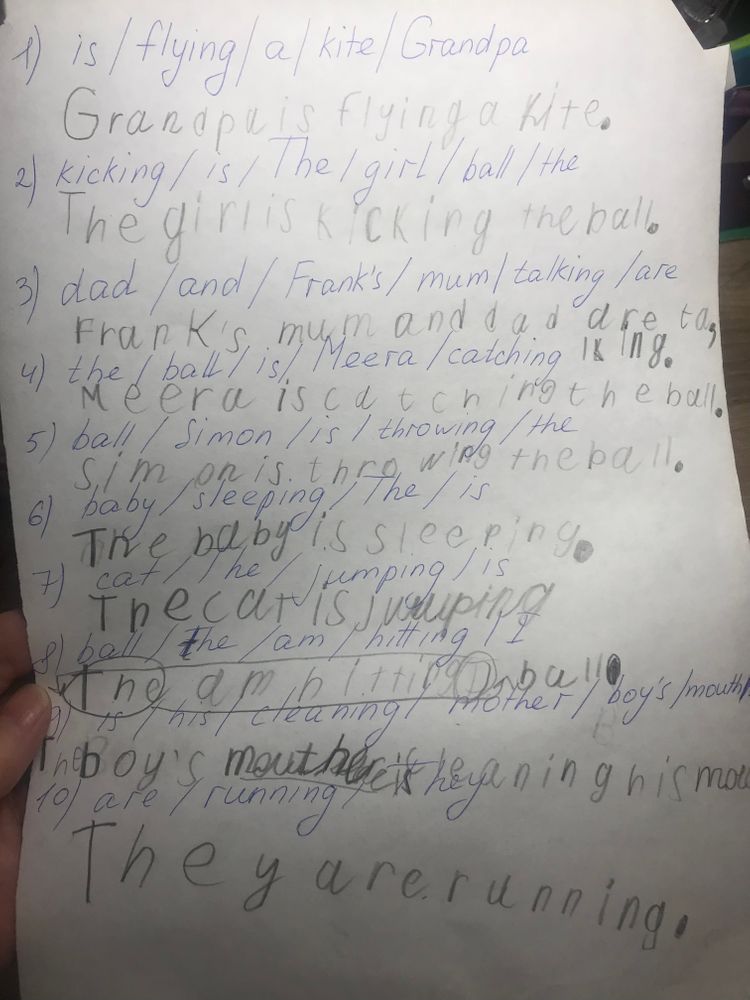 1) is / flying / a / kite / Grandpa
Grandpa is flying a kite.
2) kicking / is / The / girl / ball / the
The girl is kicking the ball.
3) dad / and / Frank's / mum / talking / are
Frank's mum and dad are ta
lking.
4) the / ball / is / Meera / catching
Meera is catching the ball.
5) ball / Simon / is / throwing / the
Simon is throwing the ball.
6) baby / sleeping / The / is
The baby is sleeping.
7) cat / The / jumping / is
The cat is jumping
8) ball / the / am / hitting / I
The am hitting I ball
9) is / his / cleaning / mother / boy's / mouth
The boy's mouther is cleaning his mou
10) are / running / They
They are running.